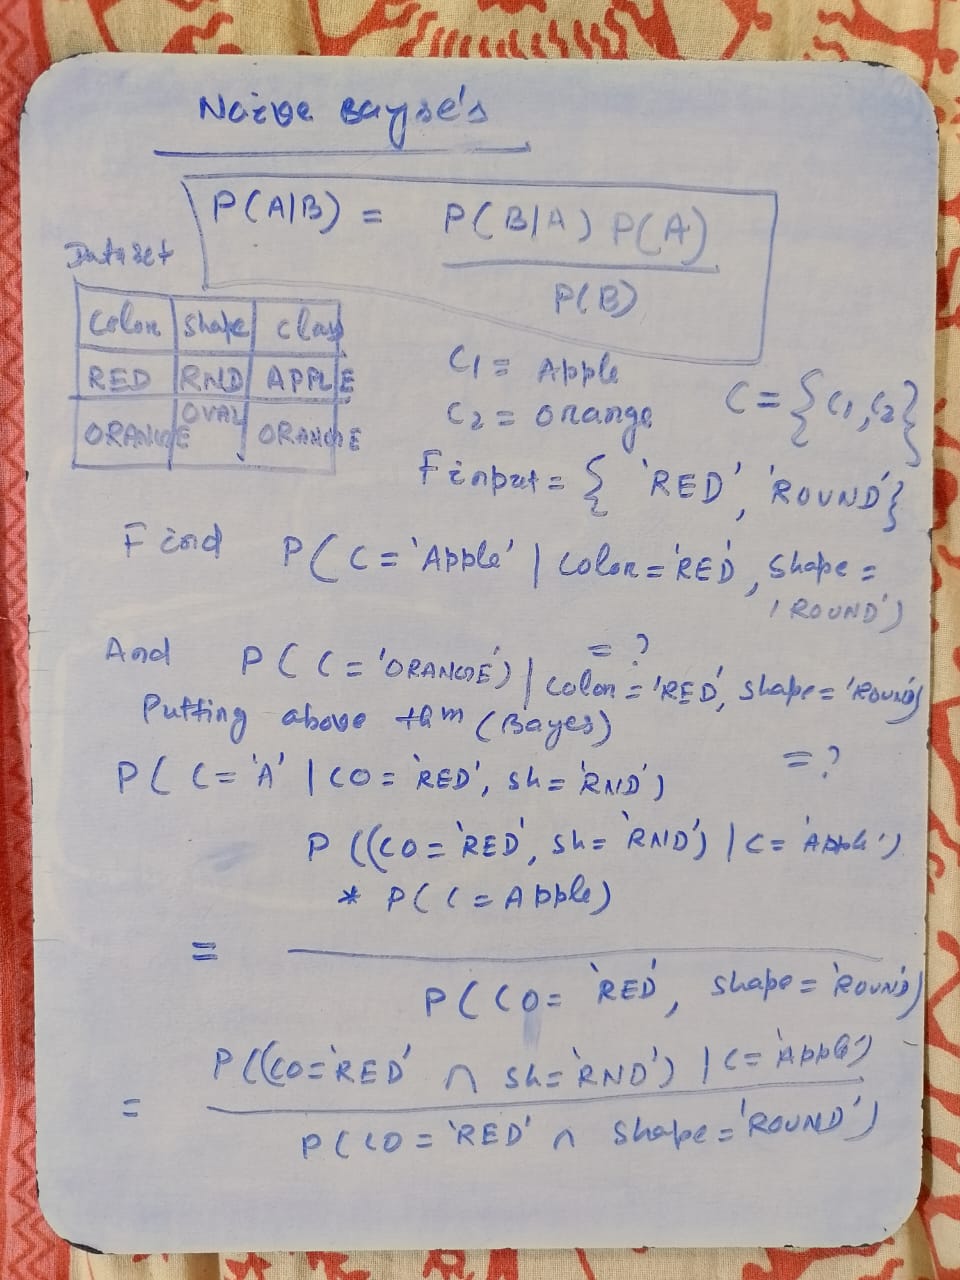 Naive Bayse's
P(A|B) = P(B|A) P(A)
P(B)
Dataset
Color Shape Class
RED RND APPLE
ORANGE OVAL ORANGE
C1 = Apple
C2 = Orange
C = {C1, C2}
Finput = { 'RED', 'ROUND'}
Find P( C = 'Apple' | Color = 'RED', Shape =
'ROUND')
= ?
And P( C = 'ORANGE') | Color = 'RED', Shape = 'Round')
Putting above thm (Bayes)
= ?
P( C = 'A' | CO = 'RED', Sh = 'RND')
P ((CO = 'RED', Sh = 'RND') | C = 'Apple')
* P( C = Apple)
=
P( CO = 'RED', Shape = 'ROUND')
P((CO = 'RED' ∩ Sh = 'RND') | C = 'APPLE')
=
P( CO = 'RED' ∩ Shape = 'ROUND')